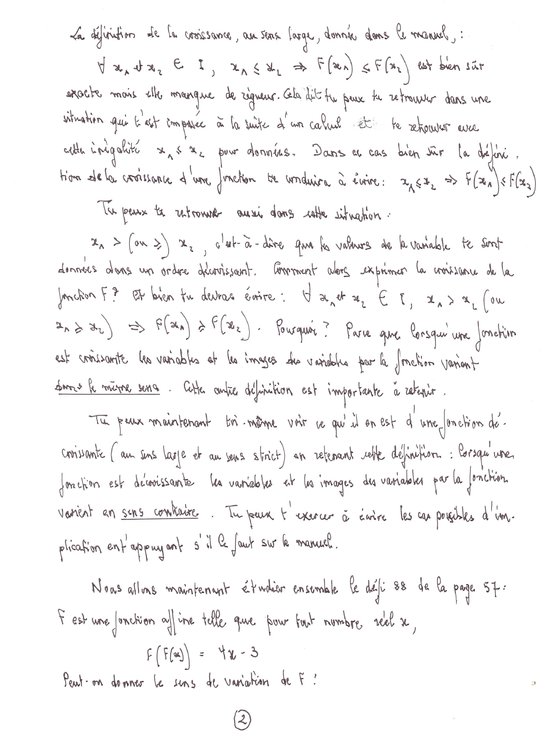 La définition de la croissance, au sens large, donnée dans le manuel, :
∀ x₁ et x₂ ∈ I, x₁ ≤ x₂ ⇒ F(x₁) ≤ F(x₂) est bien sûr
exacte mais elle manque de rigueur. Cela dit tu peux te retrouver dans une
situation qui t'est imposée à la suite d'un calcul et te retrouver avec
cette inégalité x₁ ≤ x₂ pour données. Dans ce cas bien sûr la défini
tion de la croissance d'une fonction te conduira à écrire : x₁ ≤ x₂ ⇒ F(x₁) ≤ F(x₂)
Tu peux te retrouver aussi dans cette situation :
x₁ > (ou ≥) x₂, c'est-à-dire que les valeurs de la variable te sont
données dans un ordre décroissant. Comment alors exprimer la croissance de la
fonction F ? Et bien tu devras écrire : ∀ x₁ et x₂ ∈ I, x₁ > x₂ (ou
x₁ ≥ x₂) ⇒ F(x₁) ≥ F(x₂). Pourquoi ? Parce que lorsqu'une fonction
est croissante les variables et les images des variables par la fonction varient
dans le même sens. Cette autre définition est importante à retenir.
Tu peux maintenant toi-même voir ce qu'il en est d'une fonction dé-
croissante (au sens large et au sens strict) en retenant cette définition : lorsqu'une
fonction est décroissante les variables et les images des variables par la fonction
varient en sens contraire. Tu peux t'exercer à écrire les cas possibles d'im-
plication en t'appuyant s'il le faut sur le manuel.
Nous allons maintenant étudier ensemble le défi 88 de la page 57 :
F est une fonction affine telle que pour tout nombre réel x,
F(F(x)) = 4x - 3
Peut-on donner le sens de variation de F ?
2